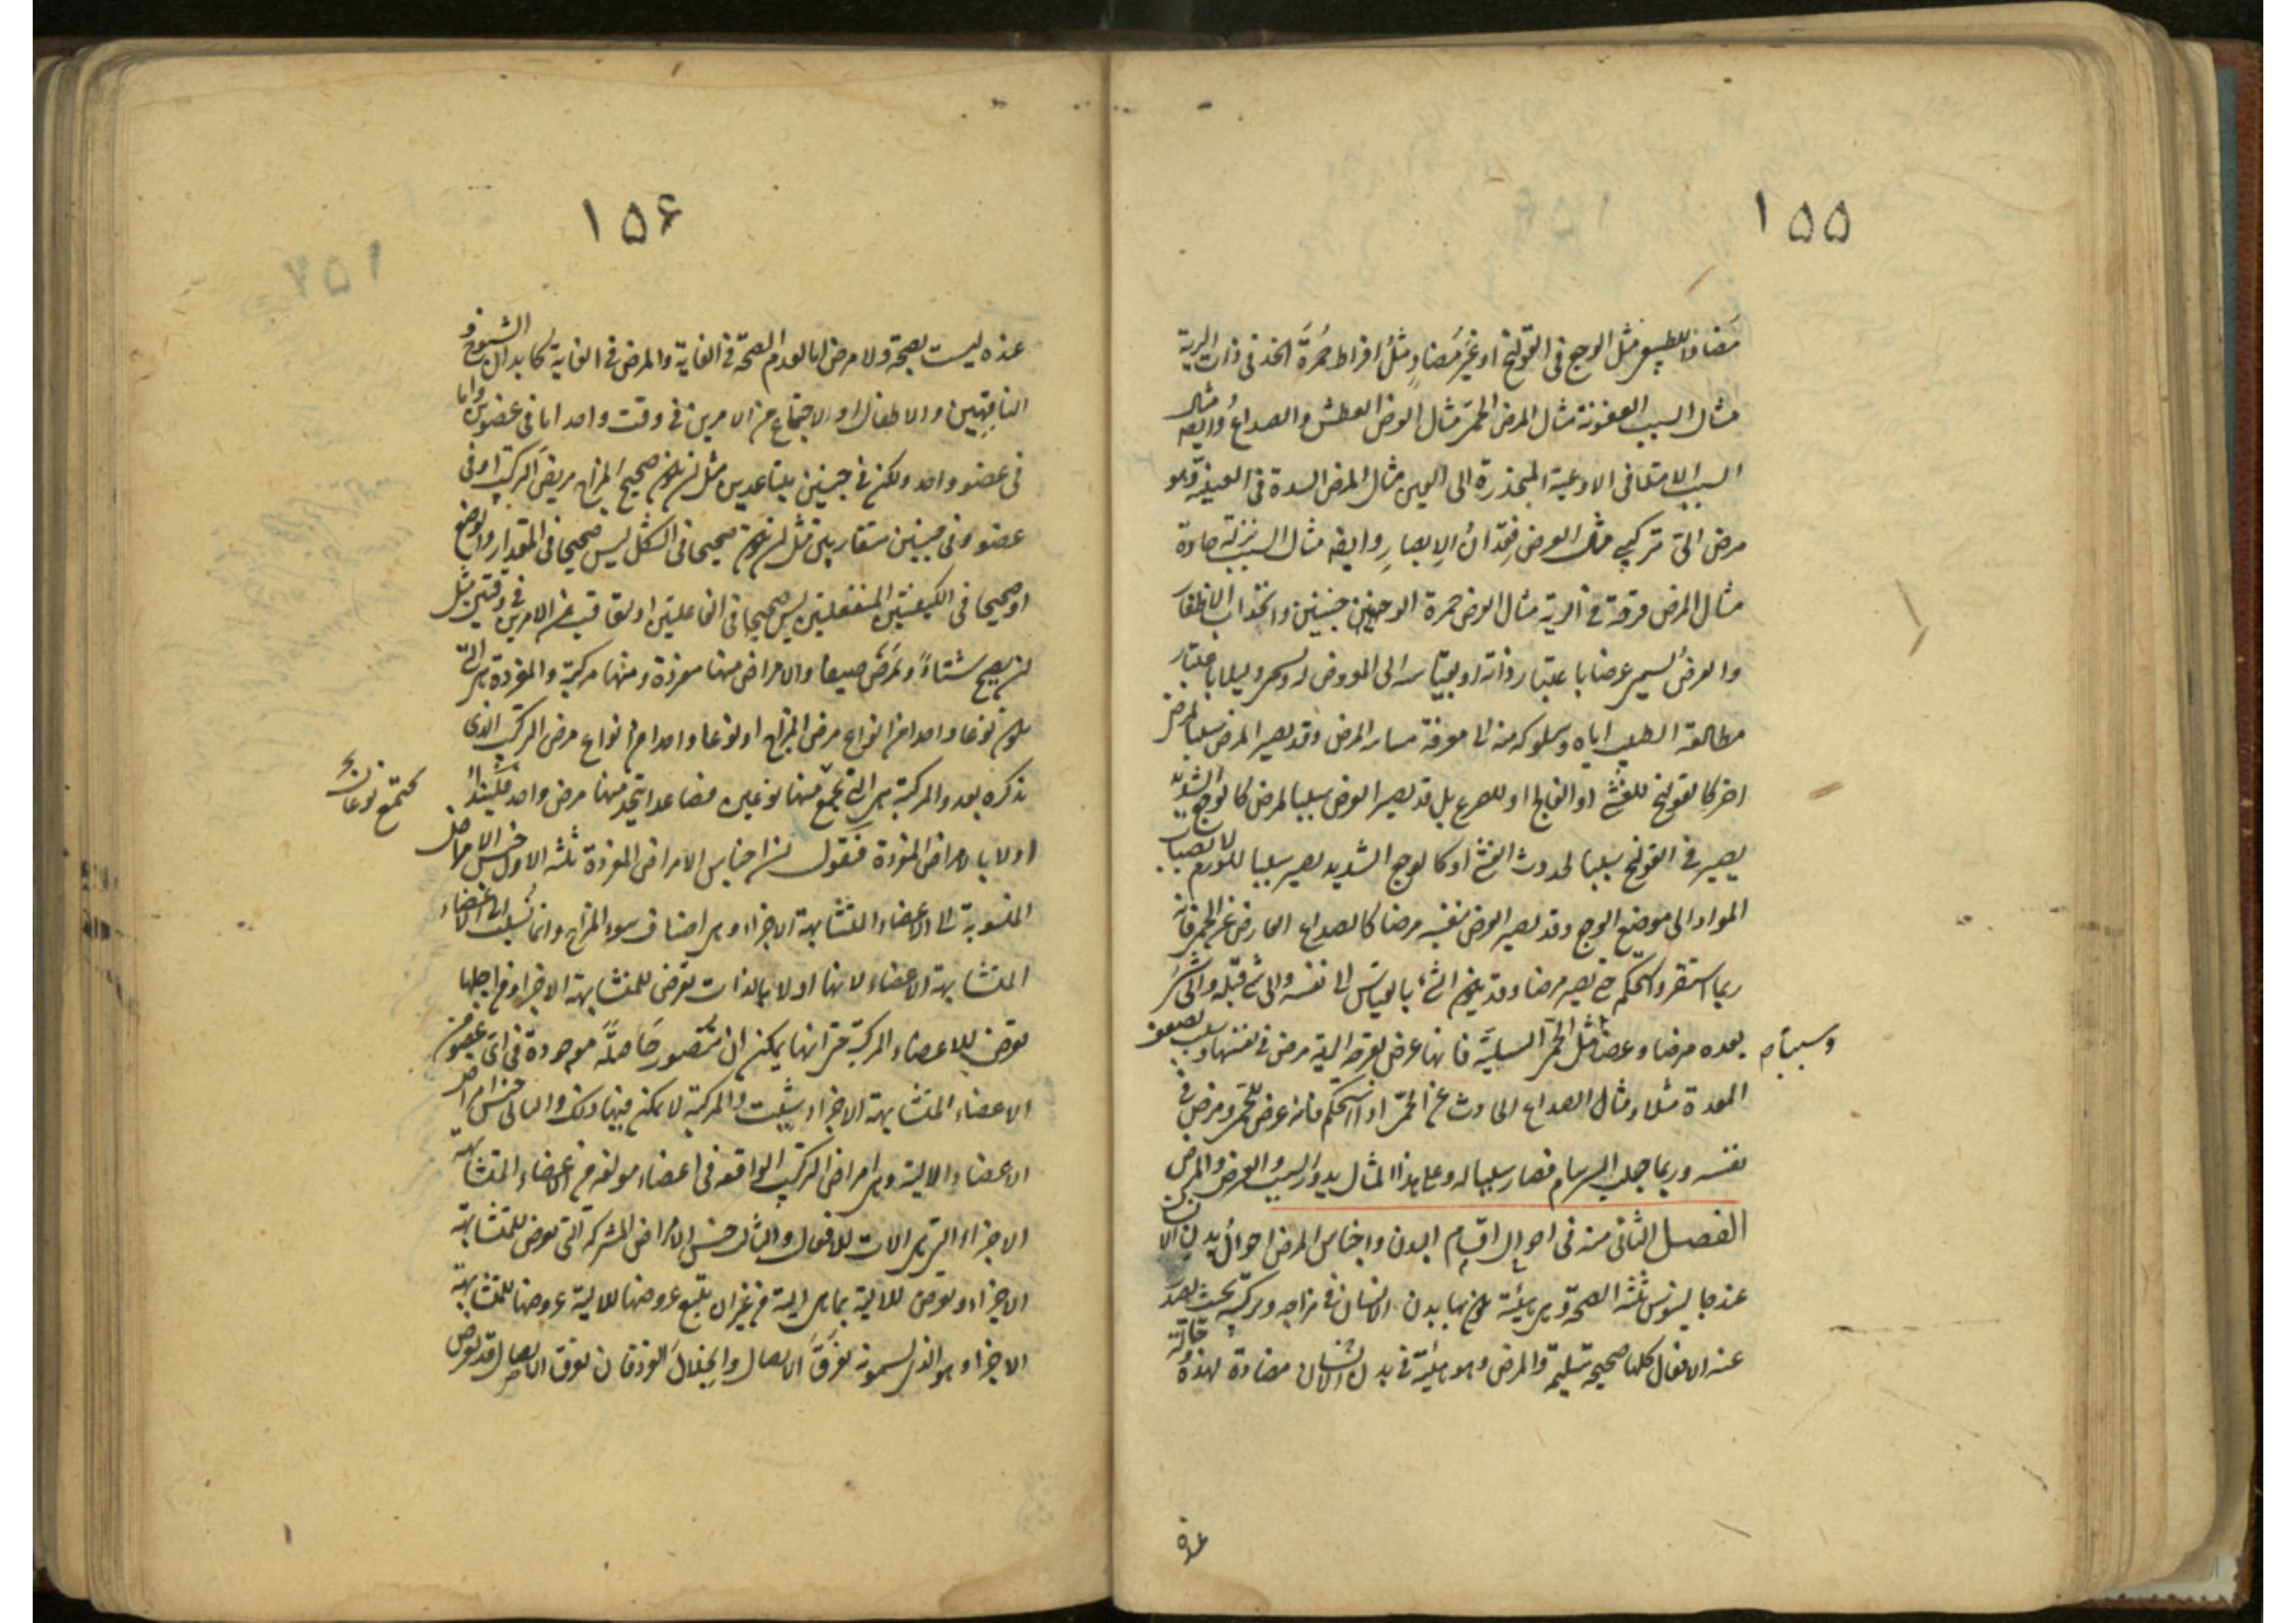 ١٥٥
مضادا للطبيعى مثل الوجع فى القولنج او غير مضاد مثل افراط حمرة الخد فى ذات الرية
مثال السبب العفونة مثال المرض الحمى مثال العرض العطش والصداع وايضا مثال
السبب الامتلاء فى الاوعية المنحدرة الى العين مثال المرض السدة فى العنبية وهو
مرض الى تركيبى مثال العرض فقدان الابصار وايضا مثال السبب نزلة حادة
مثال المرض قرحة فى الرية مثال العرض حمرة الوجنتين وانجذاب الاظفار
والعرض يسمى عرضا باعتبار ذاته او بقياسه الى المعروض له ويسمى دليلا باعتبار
مطالعة الطبيب اياه وسلوكه منه الى معرفة مسار المرض وقد يصير المرض سببا لمرض
اخر كالقولنج للغشى او الفالج او للصرع بل قد يصير العرض سببا لمرض كالوجع الشديد
يصير فى القولنج سببا لحدوث الغشى او كالوجع الشديد يصير سببا للورم لانصباب
المواد الى موضع الوجع وقد يصير العرض بنفسه مرضا كالصداع العارض عن الحمى فانه
ربما استقر واستحكم حتى يصير مرضا وقد يكون الشئ بالقياس الى نفسه والى شئ قبله والى شئ
بعده مرضا وعرضا مثل الحمى السلية فانها عرض لقرحة الرية مرض فى نفسها وسبب لضعف
وسببا
المعدة مثلا ومثال الصداع الحادث عن الحمى اذا استحكم فانه عرض للحمى ومرض فى
نفسه وربما جلب السرسام فصار سببا له وعلى هذا المثال يدور السبب والعرض والمرض
الفصل الثانى منه فى احوال اقسام البدن واجناس المرض احوال بدن الانسان
عند جالينوس ثلثة الصحة وهى هيئة يكون بها بدن الانسان فى مزاجه وتركيبه بحيث يصدر
عنه الافعال كلها صحيحة سليمة والمرض وهو هيئة فى بدن الانسان مضادة لهذه وحالة
عنده
١٥۶
عنده ليست بصحة ولا مرض اما لعدم الصحة فى الغاية والمرض فى الغاية كابدان الشيوخ و
الناقهين والاطفال او لاجتماع من الامرين فى وقت واحد اما فى عضوين واما
فى عضو واحد ولكن فى جنسين متباعدين مثل ان يكون صحيح المزاج مريض التركيب او فى
عضو وفى جنسين متقاربين مثل ان يكون صحيحا فى الشكل ليس صحيحا فى المقدار والوضع
او صحيحا فى الكيفيتين المنفعلتين ليس صحيحا فى الفاعلتين او لتعاقب من الامرين فى وقتين مثل
ان يصح شتاء ويمرض صيفا والامراض منها مفردة ومنها مركبة والمفردة هى التى
يكون نوعا واحدا من انواع مرض المزاج او نوعا واحدا من انواع مرض التركيب الذى
نذكره بعد والمركبة هى التى تجمع منها نوعين فصاعدا يتحد منها مرض واحد فلنبدأ
يجتمع نوعان
اولا بالامراض المفردة فنقول ان اجناس الامراض المفردة ثلثة الاول جنس الامراض
المنسوبة الى الاعضاء المتشابهة الاجزاء وهى اصناف سوء المزاج وانما نسبت الى الاعضاء
المتشابهة الاعضاء لانها اولا بالذات تعرض للمتشابهة الاجزاء ومن اجلها
تعرض للاعضاء المركبة حتى انها يمكن ان تتصور حاصلة موجودة فى اى عضو من
الاعضاء المتشابهة الاجزاء شئت والمركبة لا يمكن فيها ذلك والثانى جنس امراض
الاعضاء الالية وهى امراض التركيب الواقعة فى اعضاء مؤلفة من الاعضاء المتشابهة
الاجزاء التى هى الات للافعال والثالث جنس الامراض المشتركة التى تعرض للمتشابهة
الاجزاء وتعرض للالية بما هى الية من غير ان يتبع عروضها للالية عروضها للمتشابهة
الاجزاء وهو الذى يسمونه تفرق الاتصال وانحلال الفرد فان تفرق الاتصال قد يعرض